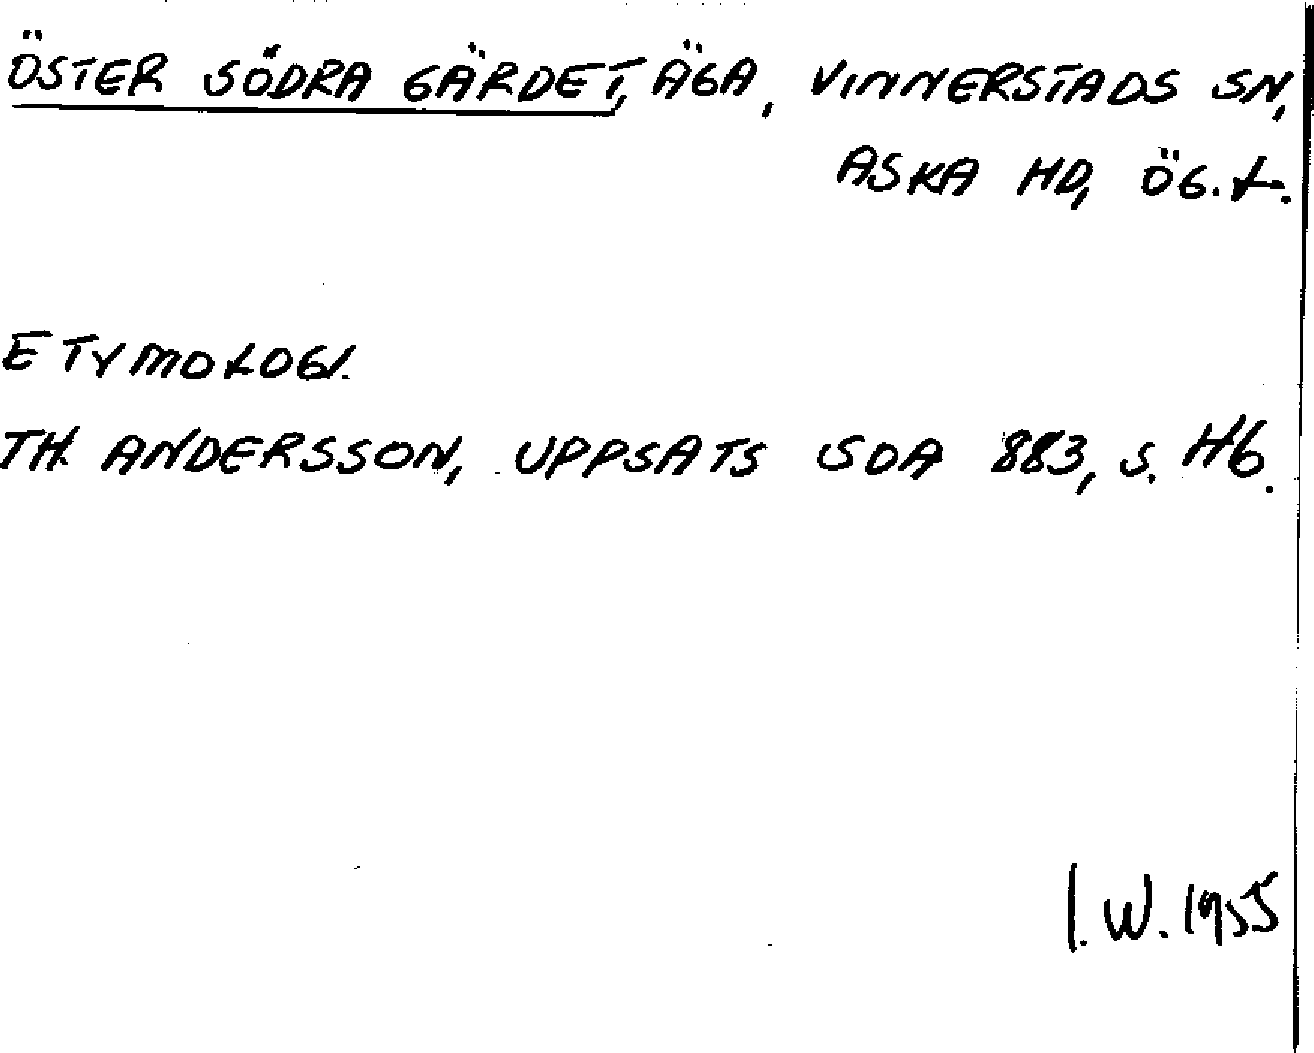 ÖSTER SÖDRA GÄRDET, ÄGA, VINNERSTADS SN,
ASKA HD, ÖG. L.
ETYMOLOGI.
TH. ANDERSSON, UPPSATS SOA 883, S. 46.
I.W. 1955